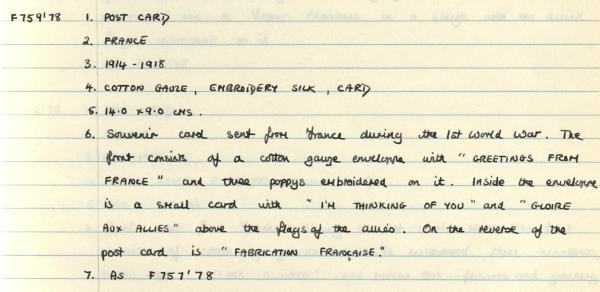 F759'78 1. POST CARD
2. FRANCE
3. 1914-1918
4. COTTON GAUZE, EMBROIDERY SILK, CARD
5. 14.0 x 9.0 CMS.
6. Souvenir card sent from France during the 1st World War. The
front consists of a cotton gauze envelope with "GREETINGS FROM
FRANCE" and three poppys embroidered on it. Inside the envelope
is a small card with "I'M THINKING OF YOU" and "GLOIRE
AUX ALLIES" above the flags of the allies. On the reverse of the
post card is "FABRICATION FRANÇAISE."
7. As F757'78